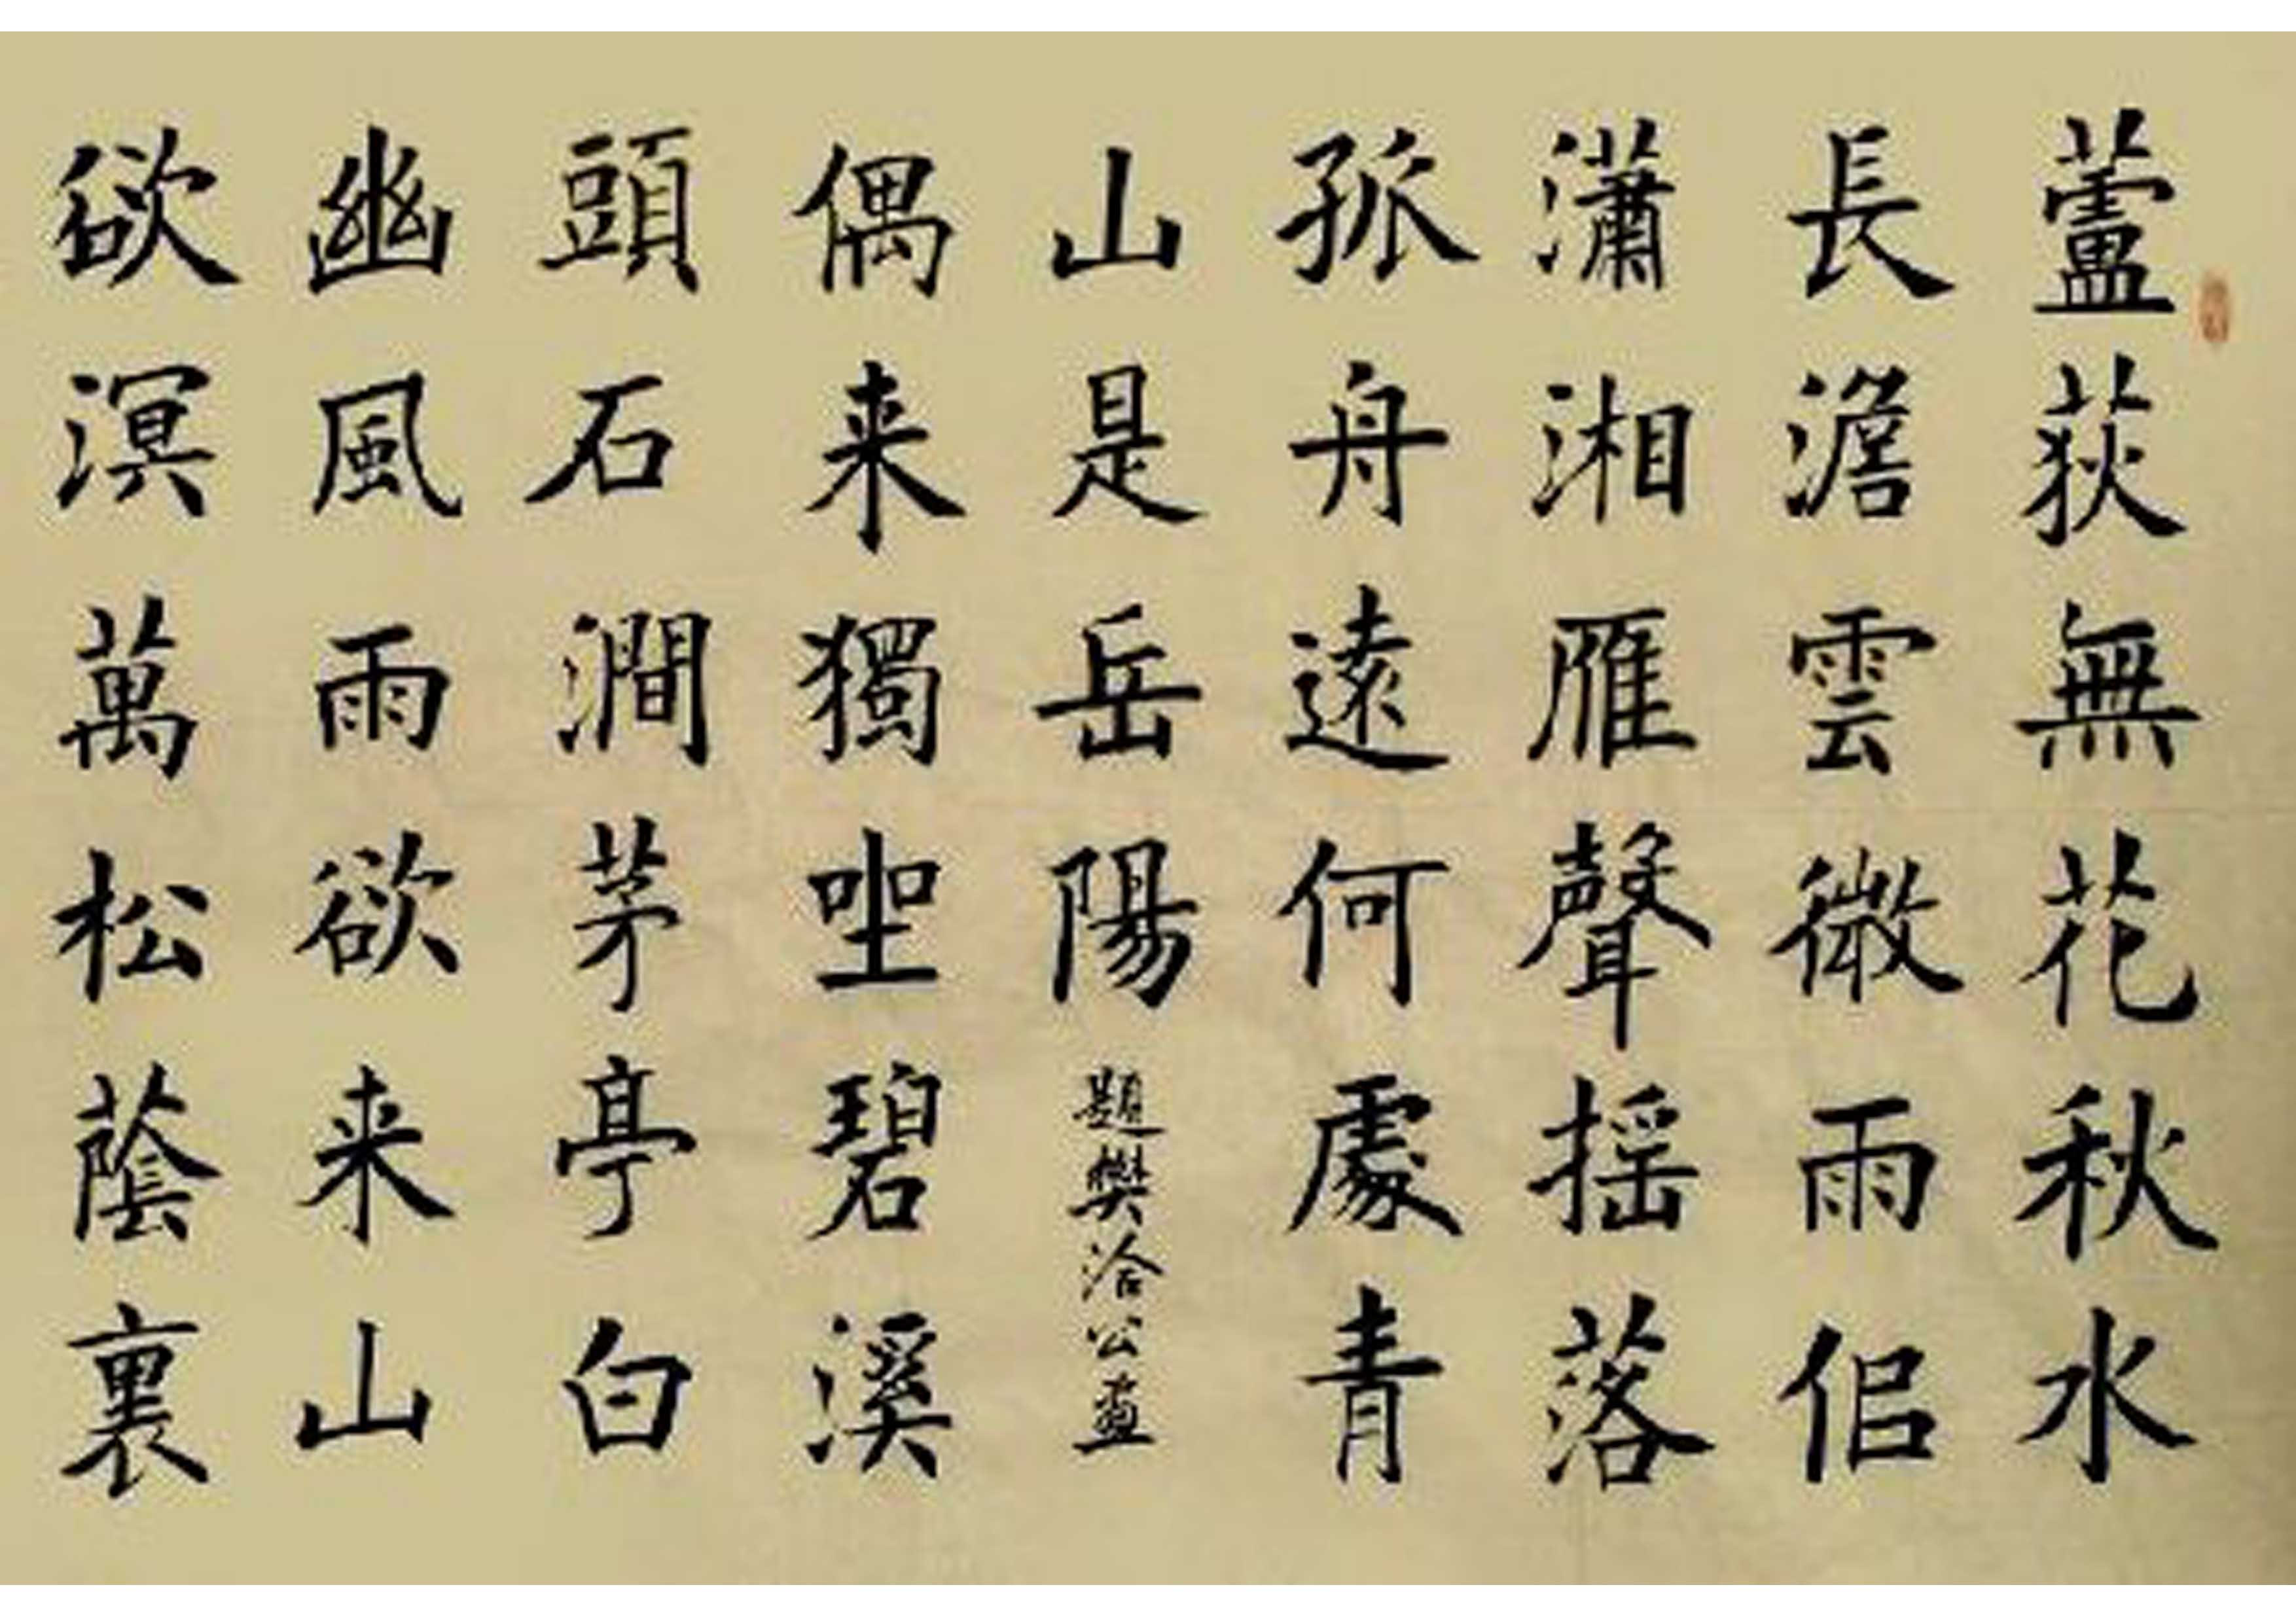 蘆荻無花秋水
長澹雲微雨佀
瀟湘雁聲摇落
孤舟遠何處青
山是岳陽題樊洽公畫
偶来獨坐碧溪
頭石澗茅亭白
幽風雨欲来山
欲溟萬松蔭裏